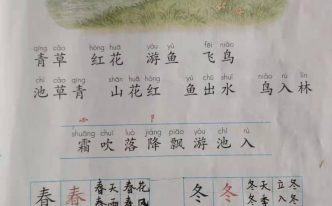 qīng cǎo hóng huā yóu yú fēi niǎo
青草 红花 游鱼 飞鸟
chí cǎo qīng shān huā hóng yú chū shuǐ niǎo rù lín
池草青 山花红 鱼出水 鸟入林
shuāng chuī luò jiàng piāo yóu chí rù
霜吹落降飘游池入
春 春 春天 春花 冬 冬 冬天 立冬
春雨 春风 冬季 入冬